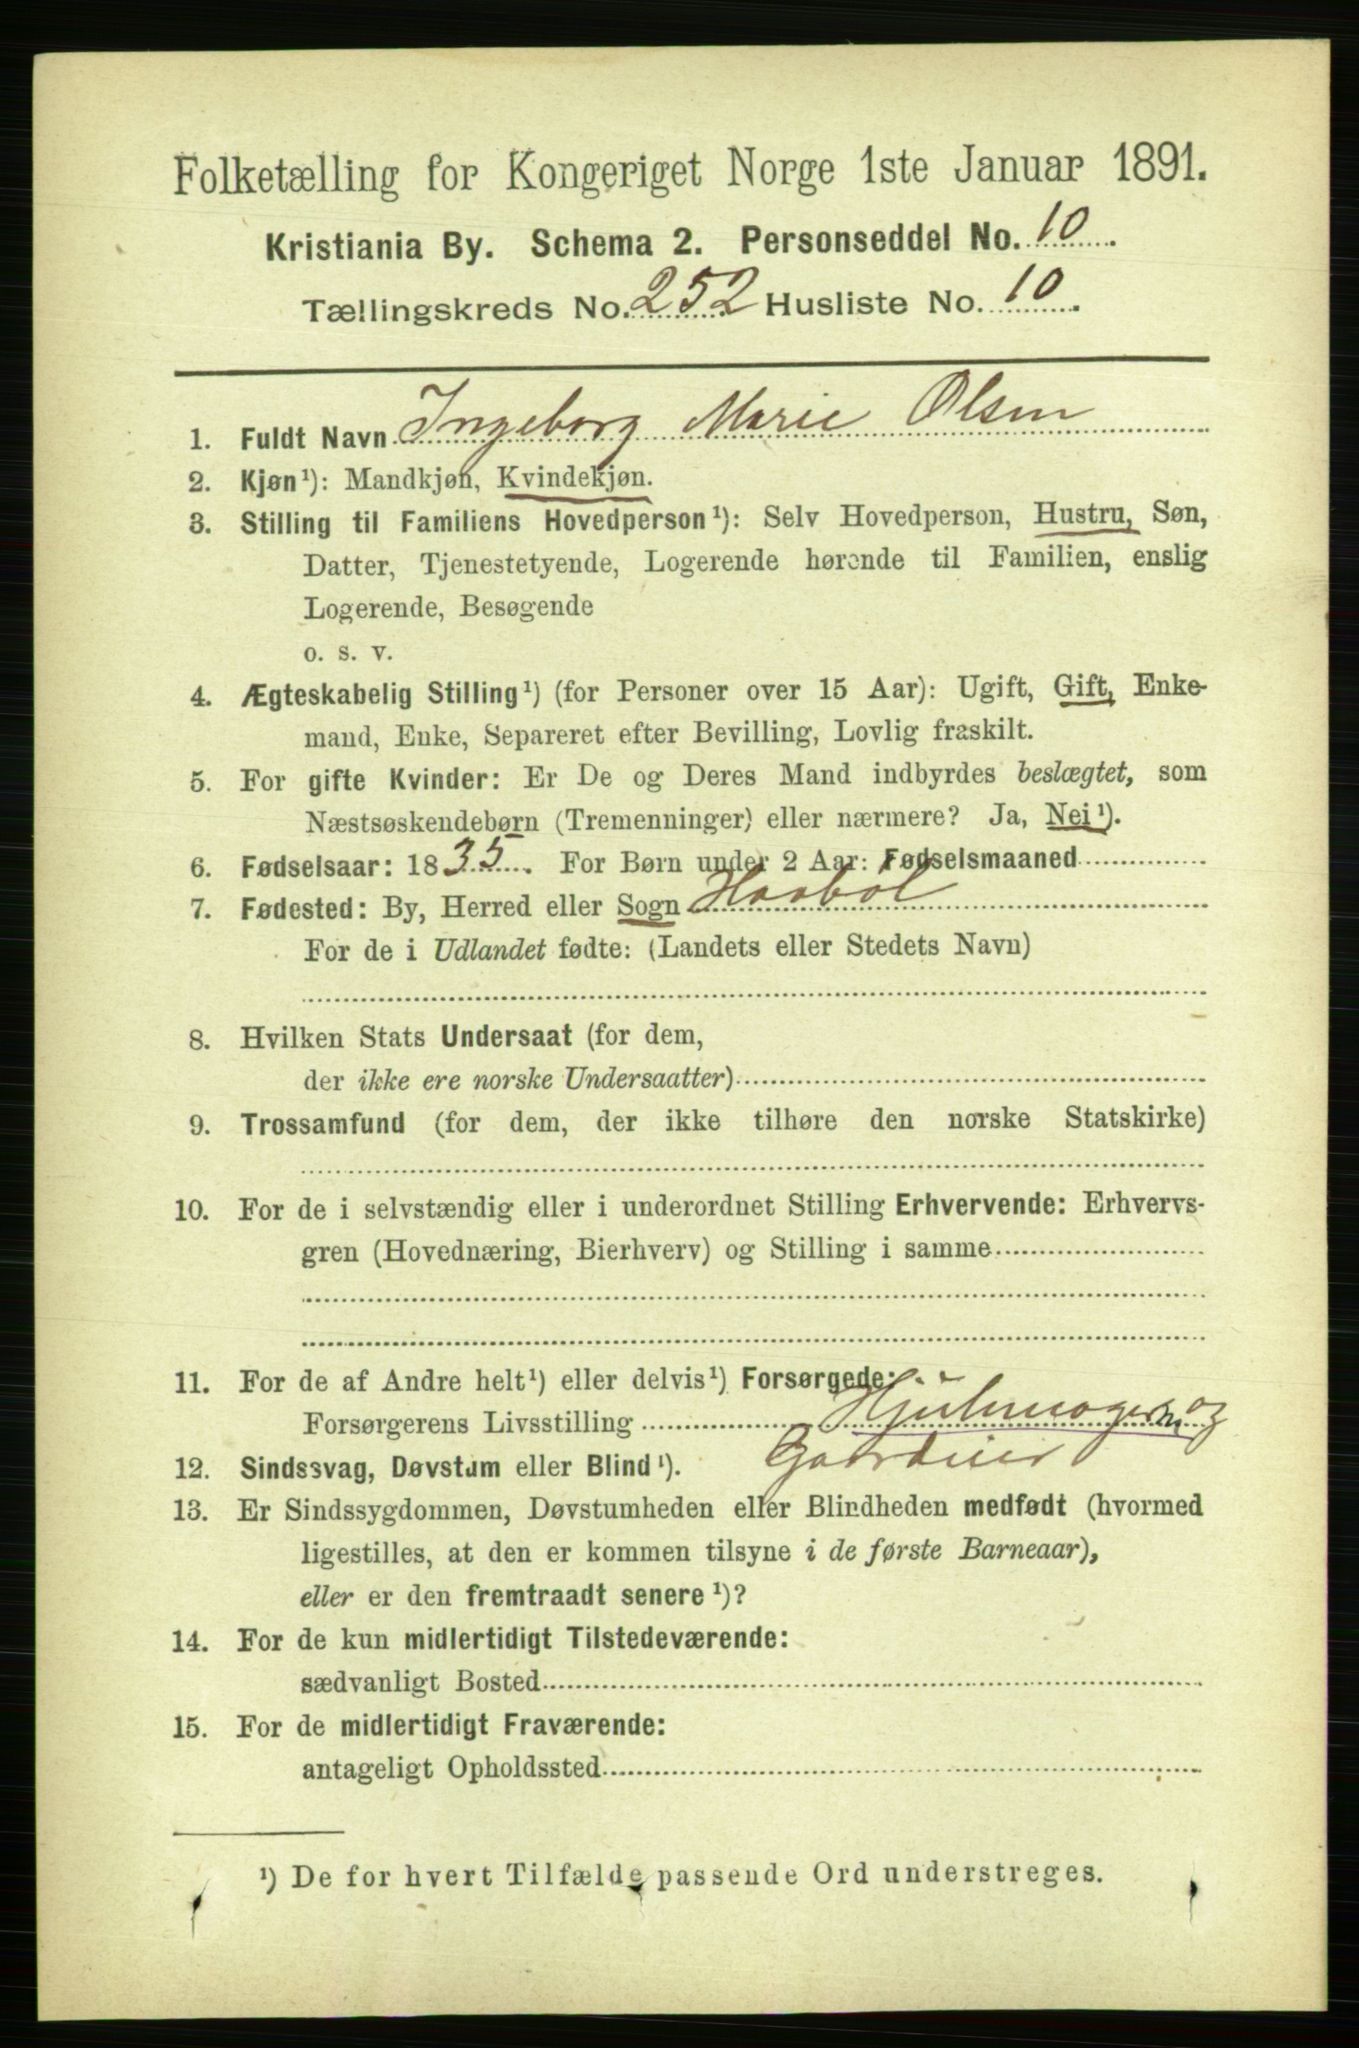 Folketælling for Kongeriget Norge 1ste Januar 1891.
Kristiania By. Schema 2. Personseddel No. 10.
Tællingskreds No. 252 Husliste No. 10.
1. Fuldt Navn Ingeborg Marie Olsen
2. Kjøn¹): Mandkjøn, Kvindekjøn.
3. Stilling til Familiens Hovedperson¹): Selv Hovedperson, Hustru, Søn,
Datter, Tjenestetyende, Logerende hørende til Familien, enslig
Logerende, Besøgende
o. s. v.
4. Ægteskabelig Stilling¹) (for Personer over 15 Aar): Ugift, Gift, Enke-
mand, Enke, Separeret efter Bevilling, Lovlig fraskilt.
5. For gifte Kvinder: Er De og Deres Mand indbyrdes beslægtet, som
Næstsøskendebørn (Tremenninger) eller nærmere? Ja, Nei¹).
6. Fødselsaar: 1835. For Børn under 2 Aar: Fødselsmaaned
7. Fødested: By, Herred eller Sogn Haabøl
For de i Udlandet fødte: (Landets eller Stedets Navn)
8. Hvilken Stats Undersaat (for dem,
der ikke ere norske Undersaatter)
9. Trossamfund (for dem, der ikke tilhøre den norske Statskirke)
10. For de i selvstændig eller i underordnet Stilling Erhvervende: Erhvervs-
gren (Hovednæring, Bierhverv) og Stilling i samme
11. For de af Andre helt¹) eller delvis¹) Forsørgede:
Forsørgerens Livsstilling Hjulmager og
Gaardeier
12. Sindssvag, Døvstum eller Blind¹).
13. Er Sindssygdommen, Døvstumheden eller Blindheden medfødt (hvormed
ligestilles, at den er kommen tilsyne i de første Barneaar),
eller er den fremtraadt senere¹)?
14. For de kun midlertidigt Tilstedeværende:
sædvanligt Bosted
15. For de midlertidigt Fraværende:
antageligt Opholdssted
¹) De for hvert Tilfælde passende Ord understreges.